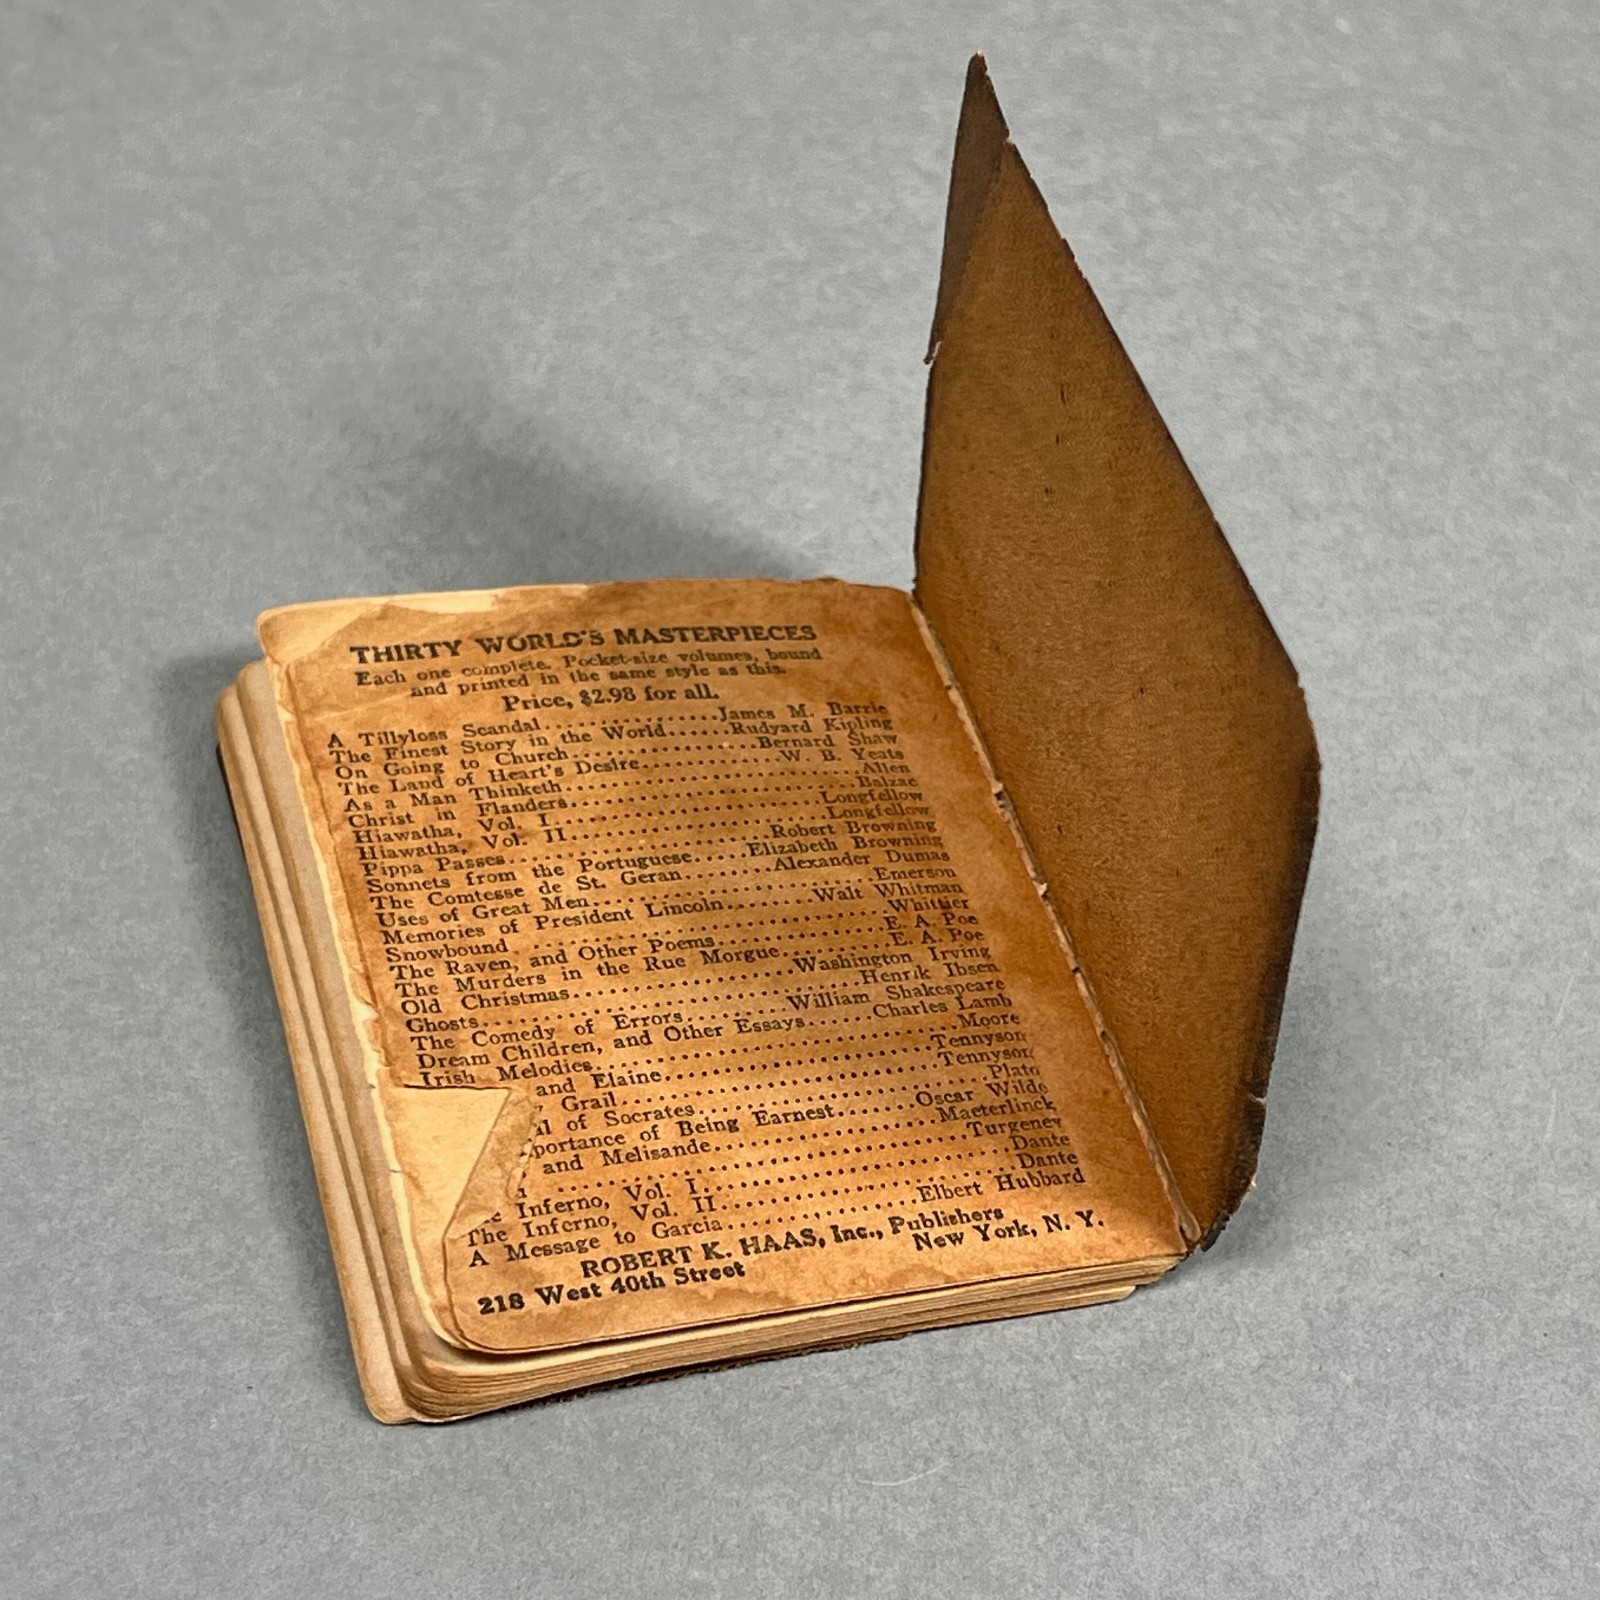 THIRTY WORLD'S MASTERPIECES
Each one complete. Pocket-size volumes, bound
and printed in the same style as this.
Price, $2.98 for all.
A Tillyloss Scandal................James M. Barrie
The Finest Story in the World......Rudyard Kipling
On Going to Church................Bernard Shaw
The Land of Heart's Desire............W. B. Yeats
As a Man Thinketh..........................Allen
Christ in Flanders..........................Balzac
Hiawatha, Vol. I.........................Longfellow
Hiawatha, Vol. II........................Longfellow
Pippa Passes.......................Robert Browning
Sonnets from the Portuguese.....Elizabeth Browning
The Comtesse de St. Geran........Alexander Dumas
Uses of Great Men..........................Emerson
Memories of President Lincoln........Walt Whitman
Snowbound ................................Whittier
The Raven, and Other Poems...............E. A. Poe
The Murders in the Rue Morgue..........E. A. Poe
Old Christmas....................Washington Irving
Ghosts...............................Henrik Ibsen
The Comedy of Errors.........William Shakespeare
Dream Children, and Other Essays......Charles Lamb
Irish Melodies..............................Moore
and Elaine.......................Tennyson
Grail............................Tennyson
of Socrates..........................Plato
portance of Being Earnest.......Oscar Wilde
and Melisande....................Maeterlinck
................................Turgenev
Inferno, Vol. I.........................Dante
The Inferno, Vol. II........................Dante
A Message to Garcia...............Elbert Hubbard
ROBERT K. HAAS, Inc., Publishers
218 West 40th Street New York, N. Y.